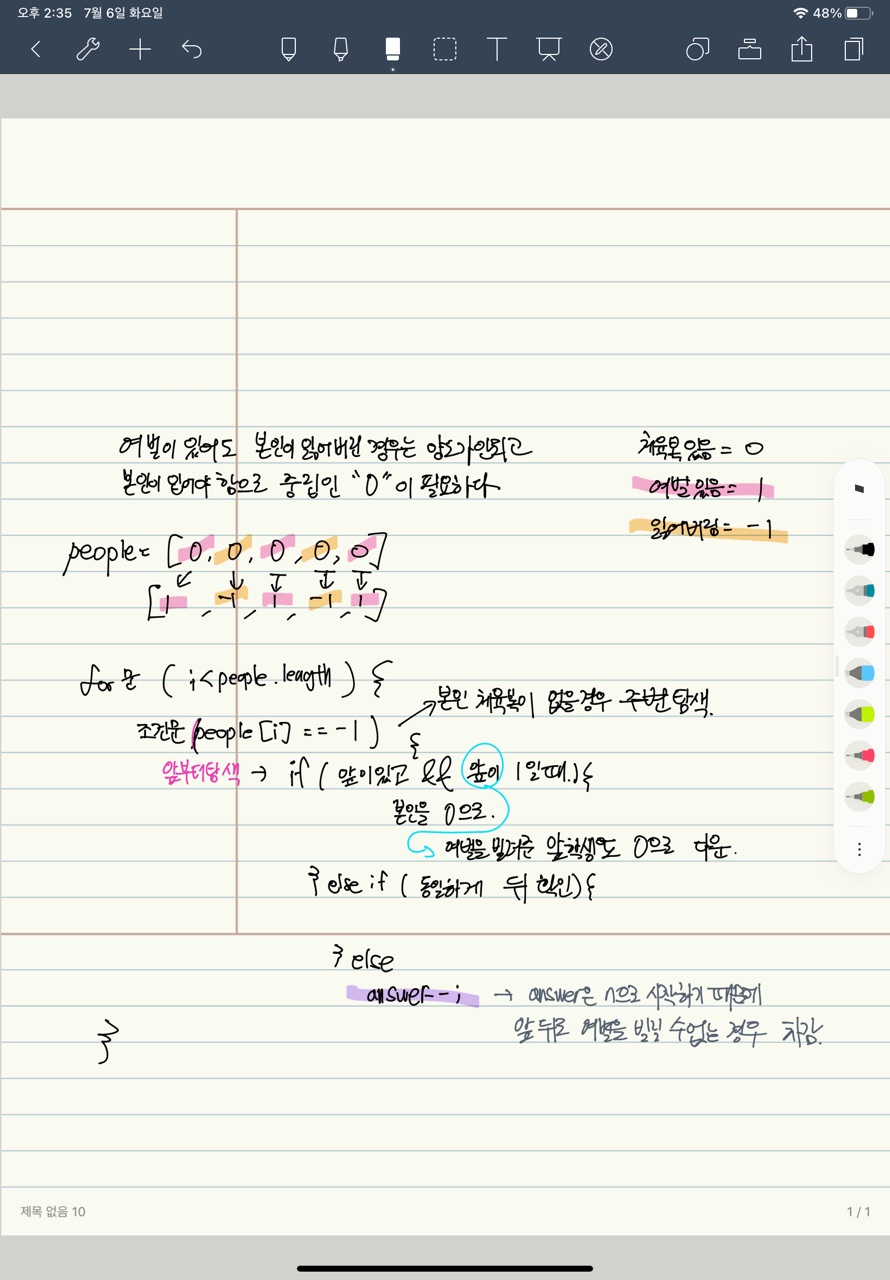 오후 2:35 7월 6일 화요일
48%
여벌이 있어도 본인이 잃어버린 경우는 양도가안되고
본인이 입어야 함으로 중립인 "0"이 필요하다
체육복있음 = 0
여벌있음 = 1
잃어버림 = -1
people = [0, 0, 0, 0, 0]
[1, -1, 1, -1, 1]
for문 (i<people.length) {
본인 체육복이 없을경우 주변탐색.
조건문 (people[i] == -1) {
앞부터탐색 → if ( 앞이있고 && 앞이 1일때.){
본인을 0으로.
여벌을 빌려준 앞학생도 0으로 다운.
} else if ( 동일하게 뒤 확인){
} else
answer--; → answer은 n으로 시작하기 때문에
앞뒤로 여벌을 빌릴 수없는 경우 차감.
}
제목 없음 10
1 / 1